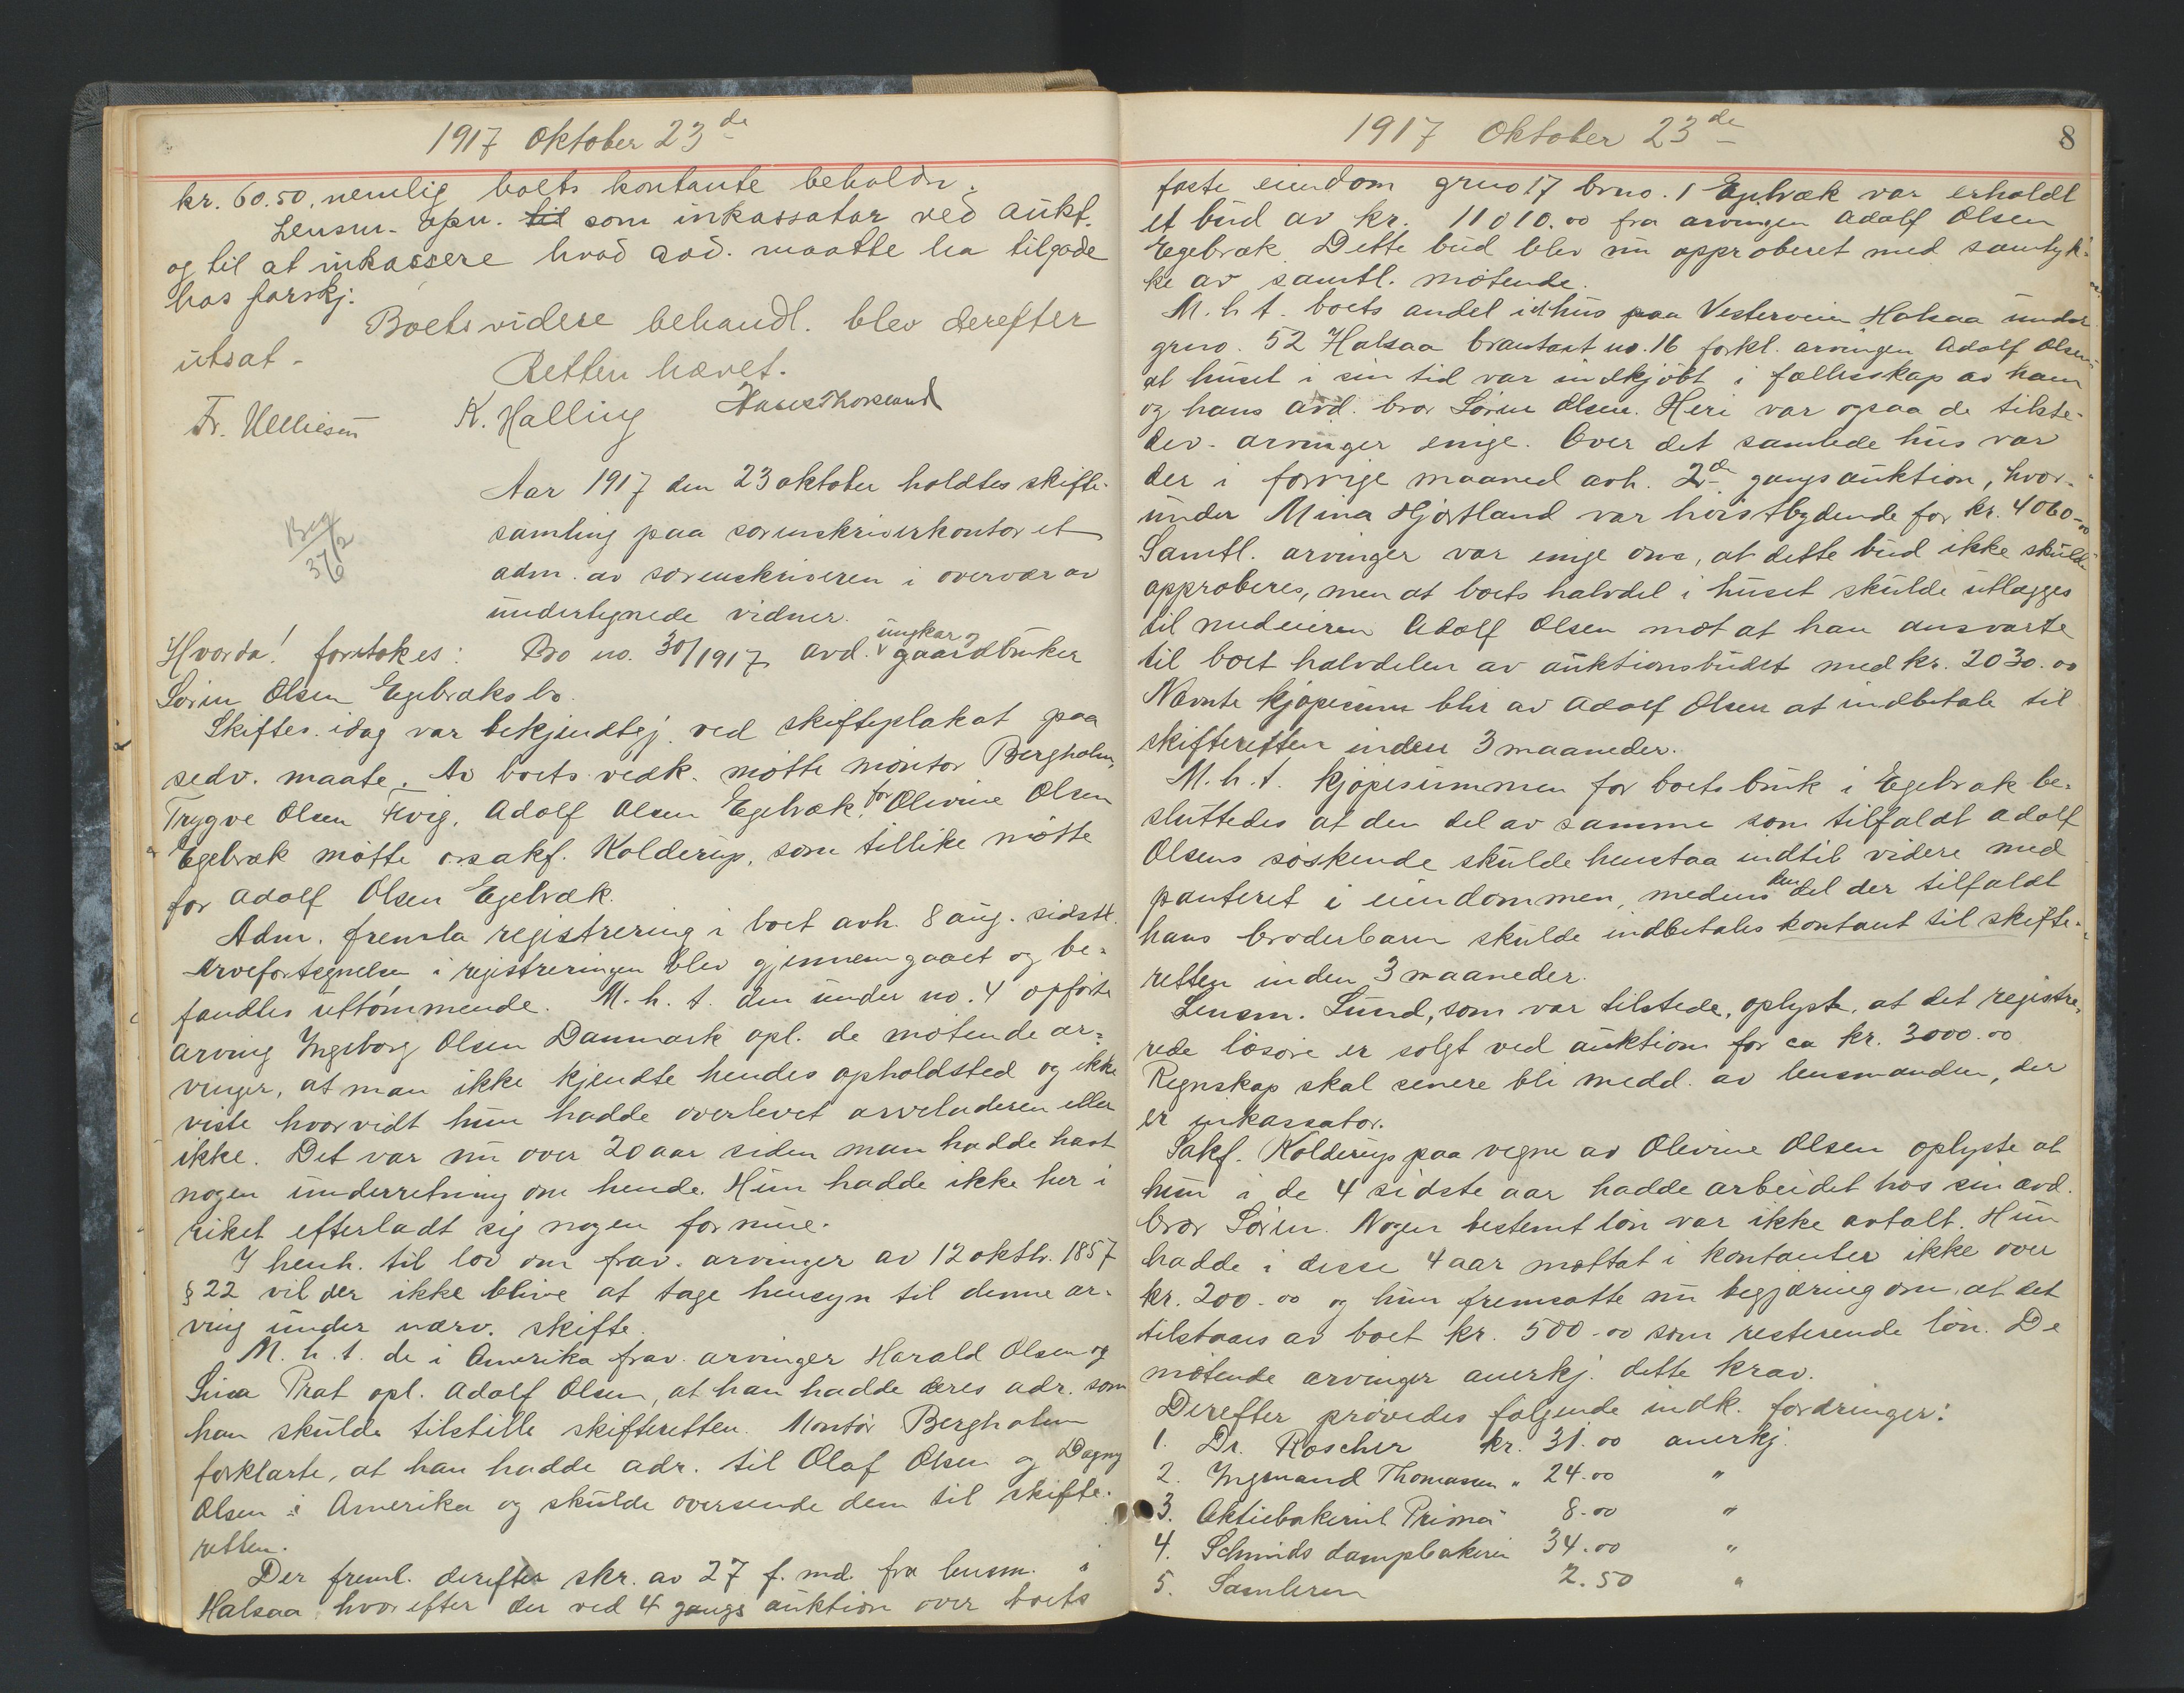 1917 Oktober 23de
kr. 60.50, nemlig boets kontante beholdn.
Lensm. opn. til som inkassator ved aukt.
og til at inkassere hvad avd. maatte ha tilgode
hos forskj.
Boets videre behandl. blev derefter
utsat.
Retten hævet.
Fr. K. Halling Hans Thorsland
Aar 1917 den 23 oktober holdtes skifte-
samling paa sorenskriverkontoret
adm. av sorenskriveren i overvær av
undertegnede vidner.
Hvorda! foretokes: Bo no. 30/1917 avd. ungkar gaardbruker
Sörin Olsen Egebræks bo.
Skiftes. idag var bekjendtgj. ved skifteplakat paa
sedv. maate. Av boets vedk. mötte montör Bergholm,
Trygve Olsen Kvig, Adolf Olsen Egebræk. For Olivine Olsen
Egebræk mötte o.r.sakf. Kolderup, som tillike mötte
for Adolf Olsen Egebræk.
Adm. fremla registrering i boet avh. 8 aug. sidstl.
Arvefortegnelsen i registreringen blev gjennemgaaet og be-
fandtes uttömmende. M. h. t. den under no. 4 opförte
arving Ingeborg Olsen Danmark opl. de mötende ar-
vinger, at man ikke kjendte hendes opholdsted og ikke
viste hvorvidt hun hadde overlevet arveladeren eller
ikke. Det var nu over 20 aar siden man hadde havt
nogen underretning om hende. Hun hadde ikke her i
riket efterladt sig nogen formue.
I henh. til lov om frav. arvinger av 12 oktbr. 1857
§ 22 vil der ikke blive at tage hensyn til denne ar-
ving under nærv. skifte.
M. h. t. de i Amerika frav. arvinger Harald Olsen og
Sina Prat opl. Adolf Olsen, at han hadde deres adr. som
han skulde tilstille skifteretten. Montör Bergholm
forklarte, at han hadde adr. til Olaf Olsen og Dagny
Olsen i Amerika og skulde oversende dem til skifte-
retten.
Der freml. derefter skr. av 27 f. md. fra lensm. i
Halsaa hvorefter der ved 4 gangs auktion over boets
1917 Oktober 23de
8
faste eiendom grno 17 brno. 1 Egebræk var erholdt
et bud av kr. 11010.00 fra arvingen Adolf Olsen
Egebræk. Dette bud blev nu approberet med samtyk-
ke av samtl. mötende.
M. h. t. boets andel i et hus paa Vesterveien Halsaa under
grno. 52 Halsaa branttakst no. 16 forkl. arvingen Adolf Olsen
at huset i sin tid var indkjöbt i fællesskap av ham
og hans avd. bror Sörin Olsen. Heri var ogsaa de tilste-
dev. arvinger enige. Over det samlede hus var
der i forrige maaned avh. 2den gangs auktion, hvor-
under Mina Hjortland var höistbydende for kr. 4060.00
Samtl. arvinger var enige om, at dette bud ikke skulde
approberes, men at boets halvdel i huset skulde utlægges
til medeieren Adolf Olsen mot at han ansvarte
til boet halvdelen av auktionsbudet med kr. 2030.00
Nævnte kjöpesum blir av Adolf Olsen at indbetale til
skifteretten inden 3 maaneder.
M. h. t. kjöpesummen for boets bruk i Egebræk be-
sluttedes at den del av samme som tilfaldt Adolf
Olsens söskende skulde henstaa indtil videre med
panteret i eiendommen, medens den del der tilfaldt
hans broderbarn skulde indbetales kontant til skifte-
retten inden 3 maaneder.
Lensm. Lund, som var tilstede, oplyste, at det registre-
rede lösöre er solgt ved auktion for ca kr. 3000.00
Regnskap skal senere bli medd. av lensmanden, der
er inkassator.
Sakf. Kolderup paa vegne av Olivine Olsen oplyste at
hun i de 4 sidste aar hadde arbeidet hos sin avd.
bror Sörin. Nogen bestemt lön var ikke avtalt. Hun
hadde i disse 4 aar mottat i kontanter ikke over
kr. 200.00 og hun fremsatte nu begjæring om, at det
tilstaaes av boet kr. 500.00 som resterende lön. De
mötende arvinger anerkj. dette krav.
Derefter prövedes fölgende indk. fordringer:
1. Dr. Roscher kr. 31.00 anerkj.
2. Ingmand Thomassen " 24.00 "
3. Aktiebakeriet Prima 8.00 "
4. Schmids dampbakeri 34.00 "
5. Samleren 2.50 "